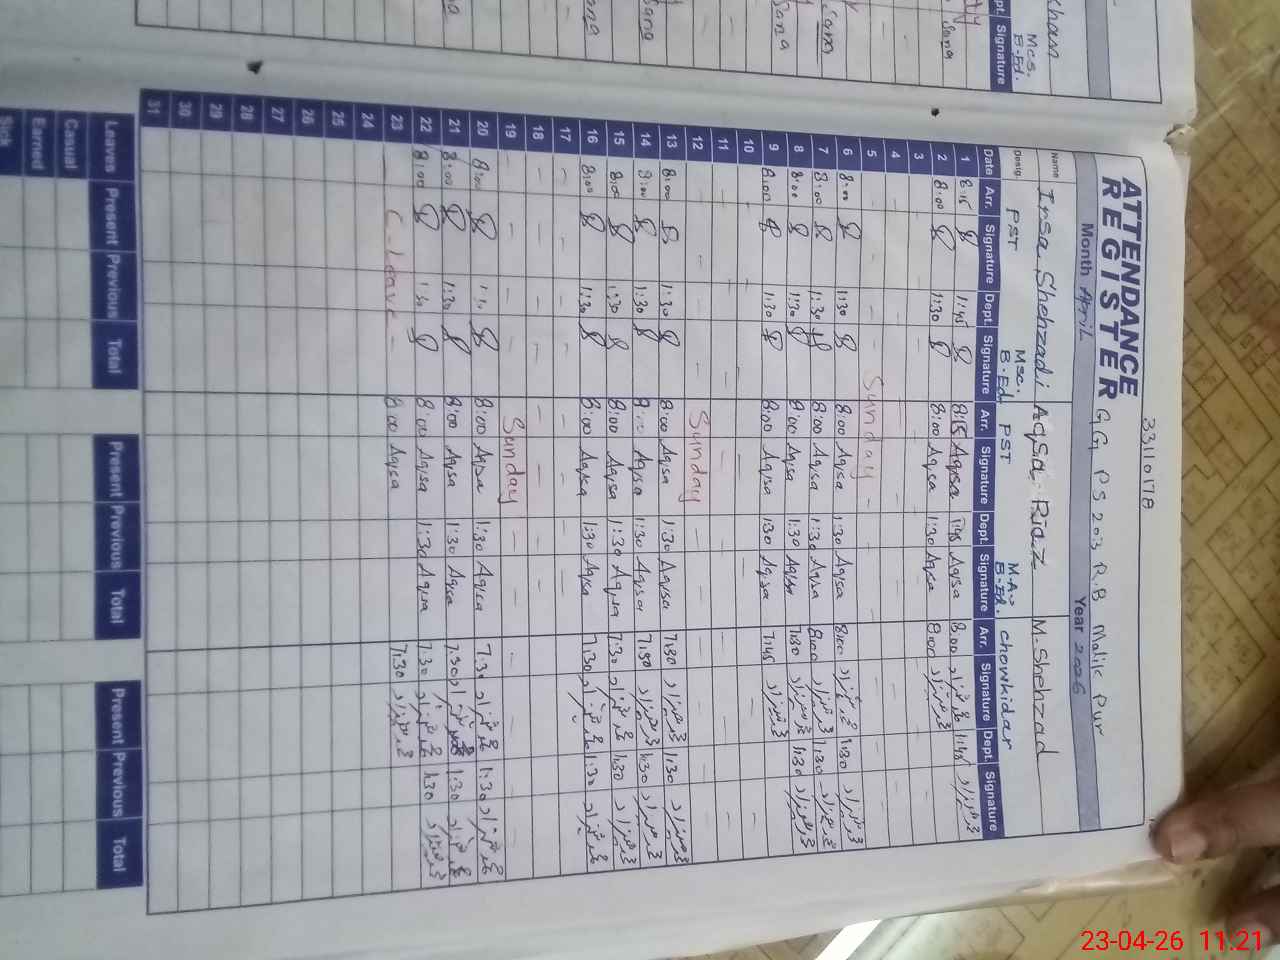 33110178
ATTENDANCE REGISTER
GG PS 203 R.B Malik Pur
Month April Year 2026
Name Irsa Shehzadi Aqsa Riaz M.Shehzad
Desig. PST Msc. B-Ed. PST M.A., B-Ed. chowkidar
Date Arr. Signature Dept. Signature Arr. Signature Dept. Signature Arr. Signature Dept. Signature
1 8:15 1:45 8:15 Aqsa 1:45 Aqsa 8:00 محمد شہزاد 1:45 محمد شہزاد
2 8:00 1:30 8:00 Aqsa 1:30 Aqsa 8:00 محمد شہزاد
3
4
5 Sunday
6 8:00 1:30 8:00 Aqsa 1:30 Aqsa 8:00 محمد شہزاد 1:30 محمد شہزاد
7 8:00 1:30 8:00 Aqsa 1:30 Aqsa 8:00 محمد شہزاد 1:30 محمد شہزاد
8 8:00 1:30 8:00 Aqsa 1:30 Aqsa 7:30 محمد شہزاد 1:30 محمد شہزاد
9 8:00 1:30 8:00 Aqsa 1:30 Aqsa 7:45 محمد شہزاد
10
11
12 Sunday
13 8:00 1:30 8:00 Aqsa 1:30 Aqsa 7:30 محمد شہزاد 1:30 محمد شہزاد
14 8:00 1:30 8:00 Aqsa 1:30 Aqsa 7:30 محمد شہزاد 1:30 محمد شہزاد
15 8:00 1:30 8:00 Aqsa 1:30 Aqsa 7:30 محمد شہزاد 1:30 محمد شہزاد
16 8:00 1:30 8:00 Aqsa 1:30 Aqsa 7:30 محمد شہزاد 1:30 محمد شہزاد
17
18
19 Sunday
20 8:00 1:30 8:00 Aqsa 1:30 Aqsa 7:30 محمد شہزاد 1:30 محمد شہزاد
21 8:00 1:30 8:00 Aqsa 1:30 Aqsa 7:30 محمد شہزاد 1:30 محمد شہزاد
22 8:00 1:30 8:00 Aqsa 1:30 Aqsa 7:30 محمد شہزاد 1:30 محمد شہزاد
23 C-Leave 8:00 Aqsa 7:30 محمد شہزاد
24
25
26
27
28
29
30
31
Leaves Present Previous Total Present Previous Total Present Previous Total
Casual
Earned
Sick
Khan
Mcs. B-Ed.
Signature
Sana
Sana
Sana
Sana
Sana
23-04-26 11:21